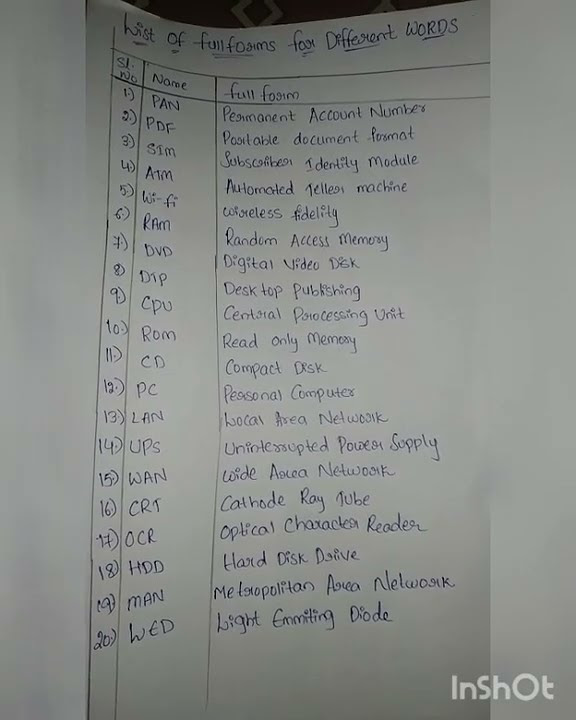 List Of fullforms for Different WORDS
Sl. No Name full form
1.) PAN Permanent Account Number
2.) PDF Portable document format
3.) SIM Subscriber Identity Module
4.) ATM Automated Teller machine
5.) Wi-fi wireless fidelity
6.) RAM Random Access Memory
7.) DVD Digital Video Disk
8) DTP Desktop Publishing
9.) CPU Central Processing Unit
10.) ROM Read only Memory
11.) CD Compact Disk
12.) PC Personal Computer
13.) LAN Local Area Network
14.) UPS Uninterrupted Power Supply
15.) WAN Wide Area Network
16.) CRT Cathode Ray Tube
17.) OCR Optical Character Reader
18.) HDD Hard Disk Drive
19.) MAN Metropolitan Area Network
20.) LED Light Emmiting Diode
InShOt